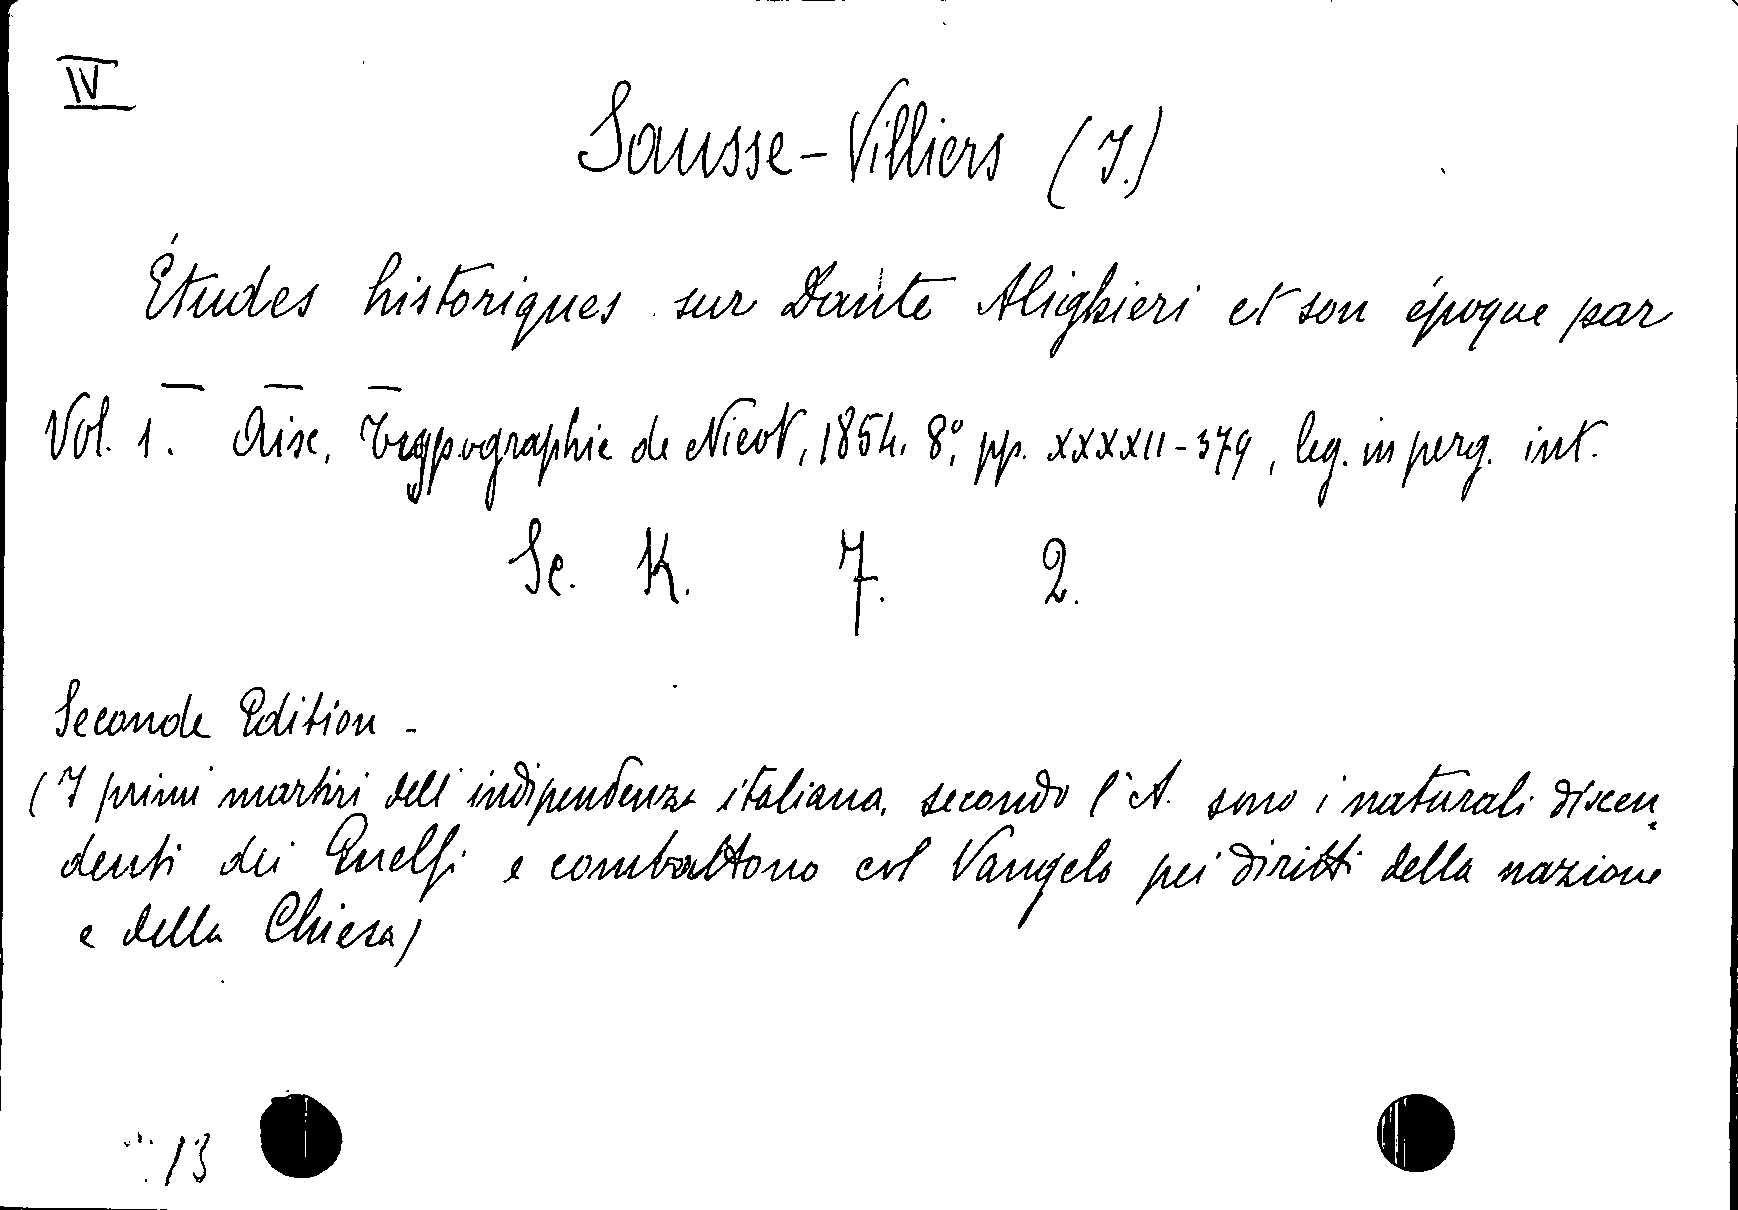 IV
Sausse-Villiers (I.)
Études historiques sur Dante Alighieri et son époque par
— — —
Vol. 1. Aix, Typographie de Nicot, 1854. 8°, pp. XXXXII-379, leg. in perg. int.
Sc. K. 7. 2.
Seconde Edition -
(I primi martiri dell' indipendenza italiana, secondo l'A. sono i naturali discen
denti dei Guelfi e combattono col Vangelo pei diritti della nazione
e della Chiesa)
13